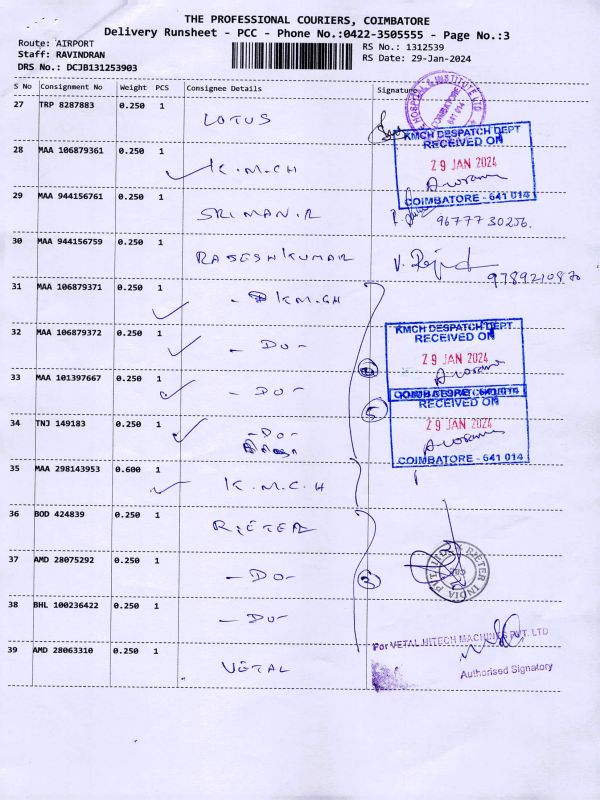 THE PROFESSIONAL COURIERS, COIMBATORE
Delivery Runsheet - PCC - Phone No.:0422-3505555 - Page No.:3
Route: AIRPORT
Staff: RAVINDRAN
DRS No.: DCJB131253903
RS No.: 1312539
RS Date: 29-Jan-2024
S No Consignment No Weight PCS Consignee Details Signature
27 TRP 8287883 0.250 1 LOTUS
HOSPITAL & INSTITUTE LTD
COIMBATORE
641 014
28 MAA 106879361 0.250 1 K.M.CH
KMCH DESPATCH DEPT
RECEIVED ON
29 JAN 2024
COIMBATORE - 641 014
29 MAA 944156761 0.250 1 SRIMAN.R
96777 30256.
30 MAA 944156759 0.250 1 RAJESH KUMAR V.
9789210870
31 MAA 106879371 0.250 1 - KM.CH
32 MAA 106879372 0.250 1 - DO -
KMCH DESPATCH DEPT
RECEIVED ON
29 JAN 2024
33 MAA 101397667 0.250 1 - DO -
5
RECEIVED ON
29 JAN 2024
COIMBATORE - 641 014
34 TNJ 149183 0.250 1 - DO -
35 MAA 298143953 0.600 1 K.M.C.H
36 BOD 424839 0.250 1 RIETER
37 AMD 28075292 0.250 1 - DO -
3
RIETER INDIA PVT. LTD
38 BHL 100236422 0.250 1 - DO -
39 AMD 28063310 0.250 1 VETAL
For VETAL HITECH MACHINES PVT. LTD
Authorised Signatory